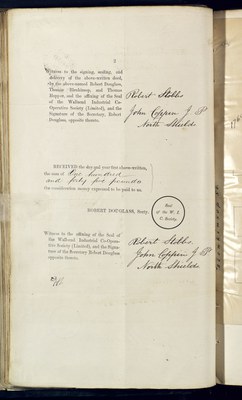 3
Witness to the signing, sealing, and
delivery of the above-written deed,
by the above-named Robert Douglass,
Thomas and Thomas
Hopper, and the affixing of the Seal
of the Wallsend Industrial Co-
Operative Society (Limited), and the
Signature of the Secretary, Robert
Douglass, opposite thereto.
Robert Stobbs
John Coppin J P
North Shields
RECEIVED the day and year first above-written,
the sum of One hundred
and forty five pounds
the consideration money expressed to be paid to us.
ROBERT DOUGLASS, Secty.
Seal
of the W. I.
C. Society.
Witness to the affixing of the Seal of
the Wallsend Industrial Co-Opera-
tive Society (Limited), and the Signa-
ture of the Secretary Robert Douglass
opposite thereto.
Robert Stobbs.
John Coppin J P
North Shields